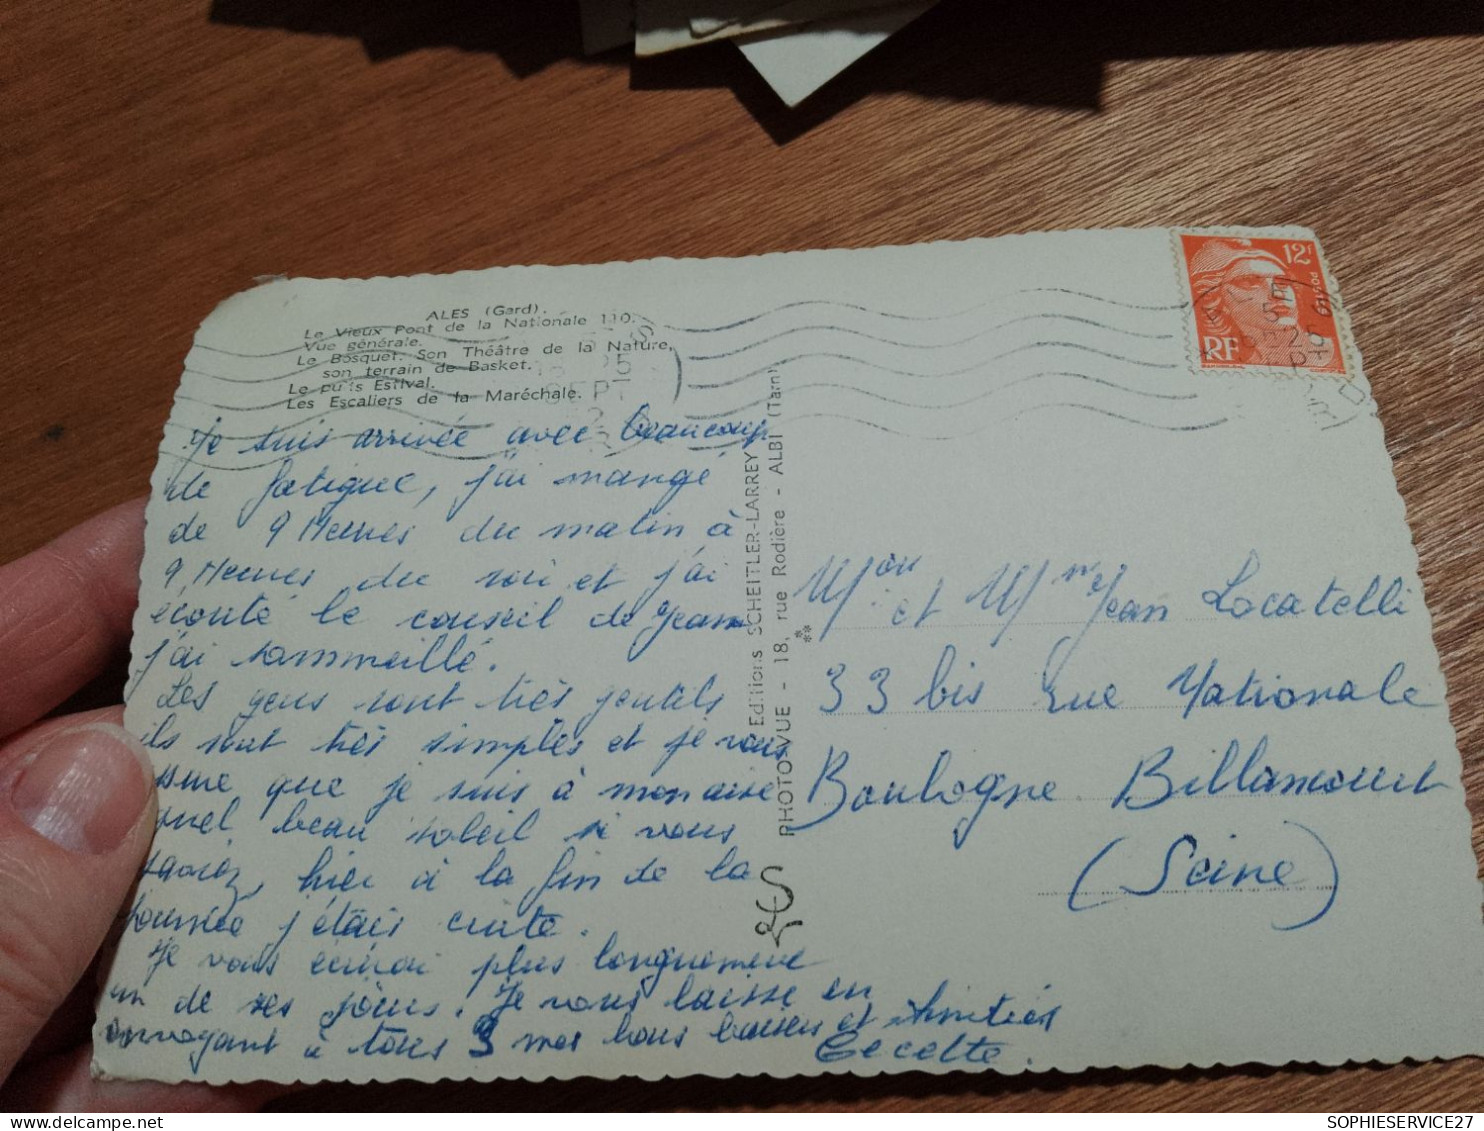 ALES (Gard).
Le Vieux Pont de la Nationale 110.
Vue générale.
Le Bosquet. Son Théâtre de la Nature,
son terrain de Basket.
Le puits Estival.
Les Escaliers de la Maréchale.
Je suis arrivée avec beaucoup
de fatigue, j'ai mangé
de 9 Heures du matin à
9 Heures du soir et j'ai
écouté le conseil de Jean
j'ai sommeillé.
Les gens sont très gentils
ils sont très simples et je vous
assure que je suis à mon aise
quel beau soleil si vous
saviez, hier à la fin de la
journée j'étais cuite.
Je vous écrirai plus longuement
un de ses jours. Je vous laisse en
envoyant à tous 3 mes bons baisers et Amitiés
Editions SCHEITLER-LARREY
PHOTO-VUE - 18, rue Rodière - ALBI (Tarn)
12f
RF
SEPT
Mon et Mme Jean Locatelli
33 bis rue Nationale
Boulogne Billancourt
(Seine)
SOPHIESERVICE27